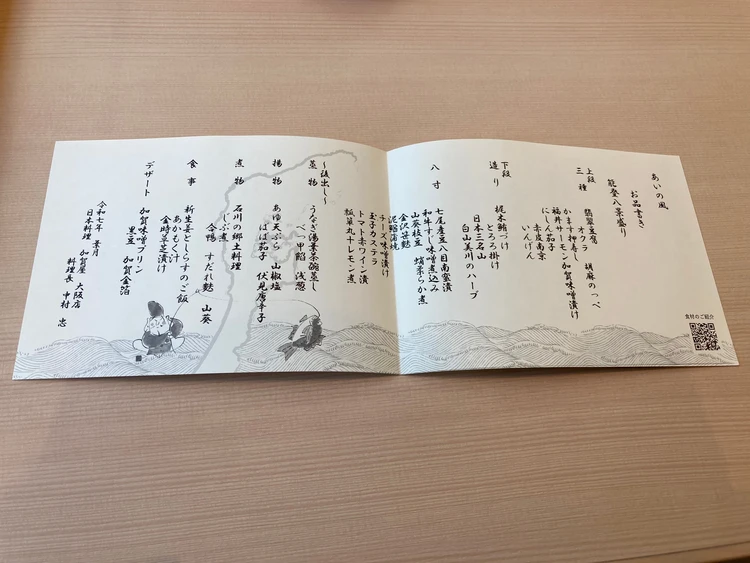 あいの風
お品書き
能登八景盛り
上段 翡翠豆腐 胡麻のっぺ
三種 オクラ
かます押寿し
福井サーモン加賀味噌漬け
にしん茄子
赤皮南京
いんげん
下段
造り 梶木鮪づけ
とろろ掛け
日本三名山
白山美川のハーブ
八寸 七尾産豆八目南蛮漬
和牛すじ味噌煮込み
山葵枝豆 蛸柔らか煮
金沢笹麩
泥鰌蒲焼
チーズ味噌漬け
玉子カステラ
トマト赤ワイン漬
瓢箪丸十レモン煮
〜後出し〜
蒸物 うなぎ湯葉茶碗蒸し
べっ甲餡 浅葱
揚物 あゆ天ぷら 山椒塩
ばば茄子 伏見唐辛子
煮物 石川の郷土料理
じぶ煮
合鴨 すだれ麩 山葵
食事 新生姜としらすのご飯
あかもく汁
金時草芝漬け
デザート 加賀味噌プリン
黒豆 加賀金箔
令和七年 葉月
日本料理 加賀屋 大阪店
料理長 中村 忠
食材のご紹介